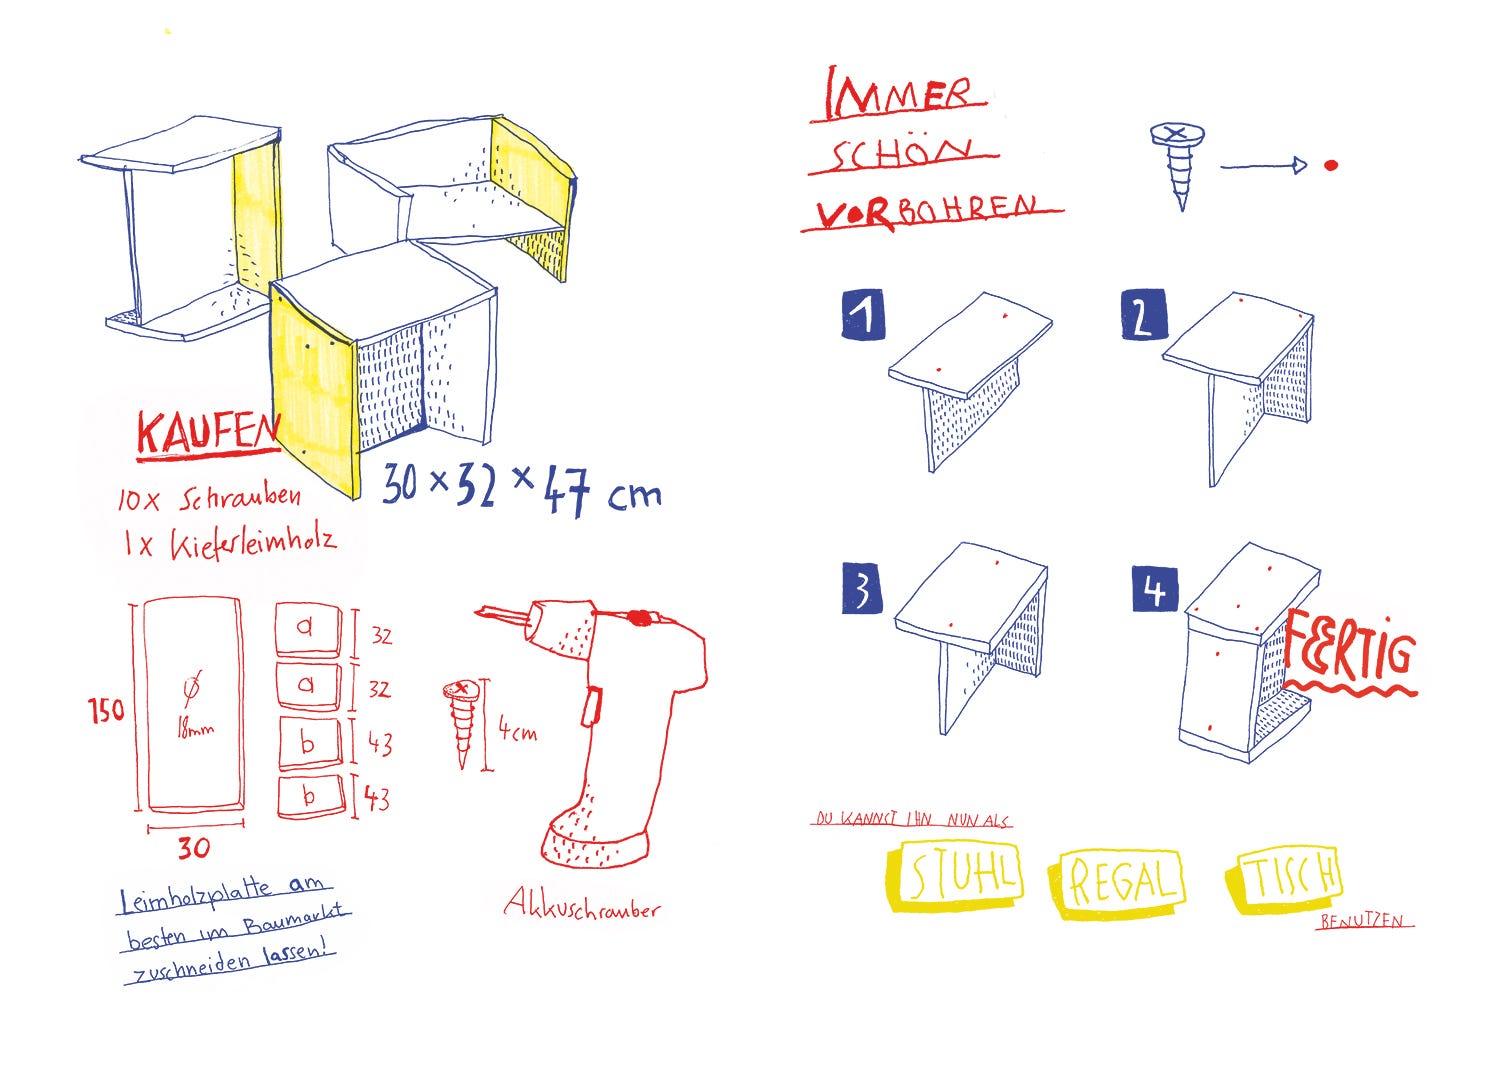 KAUFEN
10x Schrauben
1x Kieferleimholz
30 × 32 × 47 cm
150
Ø
18mm
30
a
32
a
32
b
43
b
43
4cm
Akkuschrauber
Leimholzplatte am
besten im Baumarkt
zuschneiden lassen!
IMMER
SCHÖN
VORBOHREN
1
2
3
4
FERTIG
DU KANNST IHN NUN ALS
STUHL
REGAL
TISCH
BENUTZEN